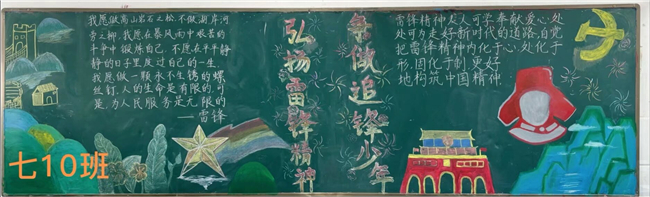 我愿做高山岩石之松,不做湖岸河
旁之柳.我愿在暴风雨中艰苦的
斗争中锻炼自己,不愿在平平静
静的日子里度过自己的一生.
我愿做一颗永不生锈的螺
丝钉.人的生命是有限的,可
是,为人民服务是无限的
——雷锋
弘扬雷锋精神
争做追锋少年
雷锋精神,人人可学,奉献爱心,处
处可为.走好新时代的道路,自觉
把雷锋精神内化于心,外化于
形,固化于制,更好
地构筑中国精神.
七10班